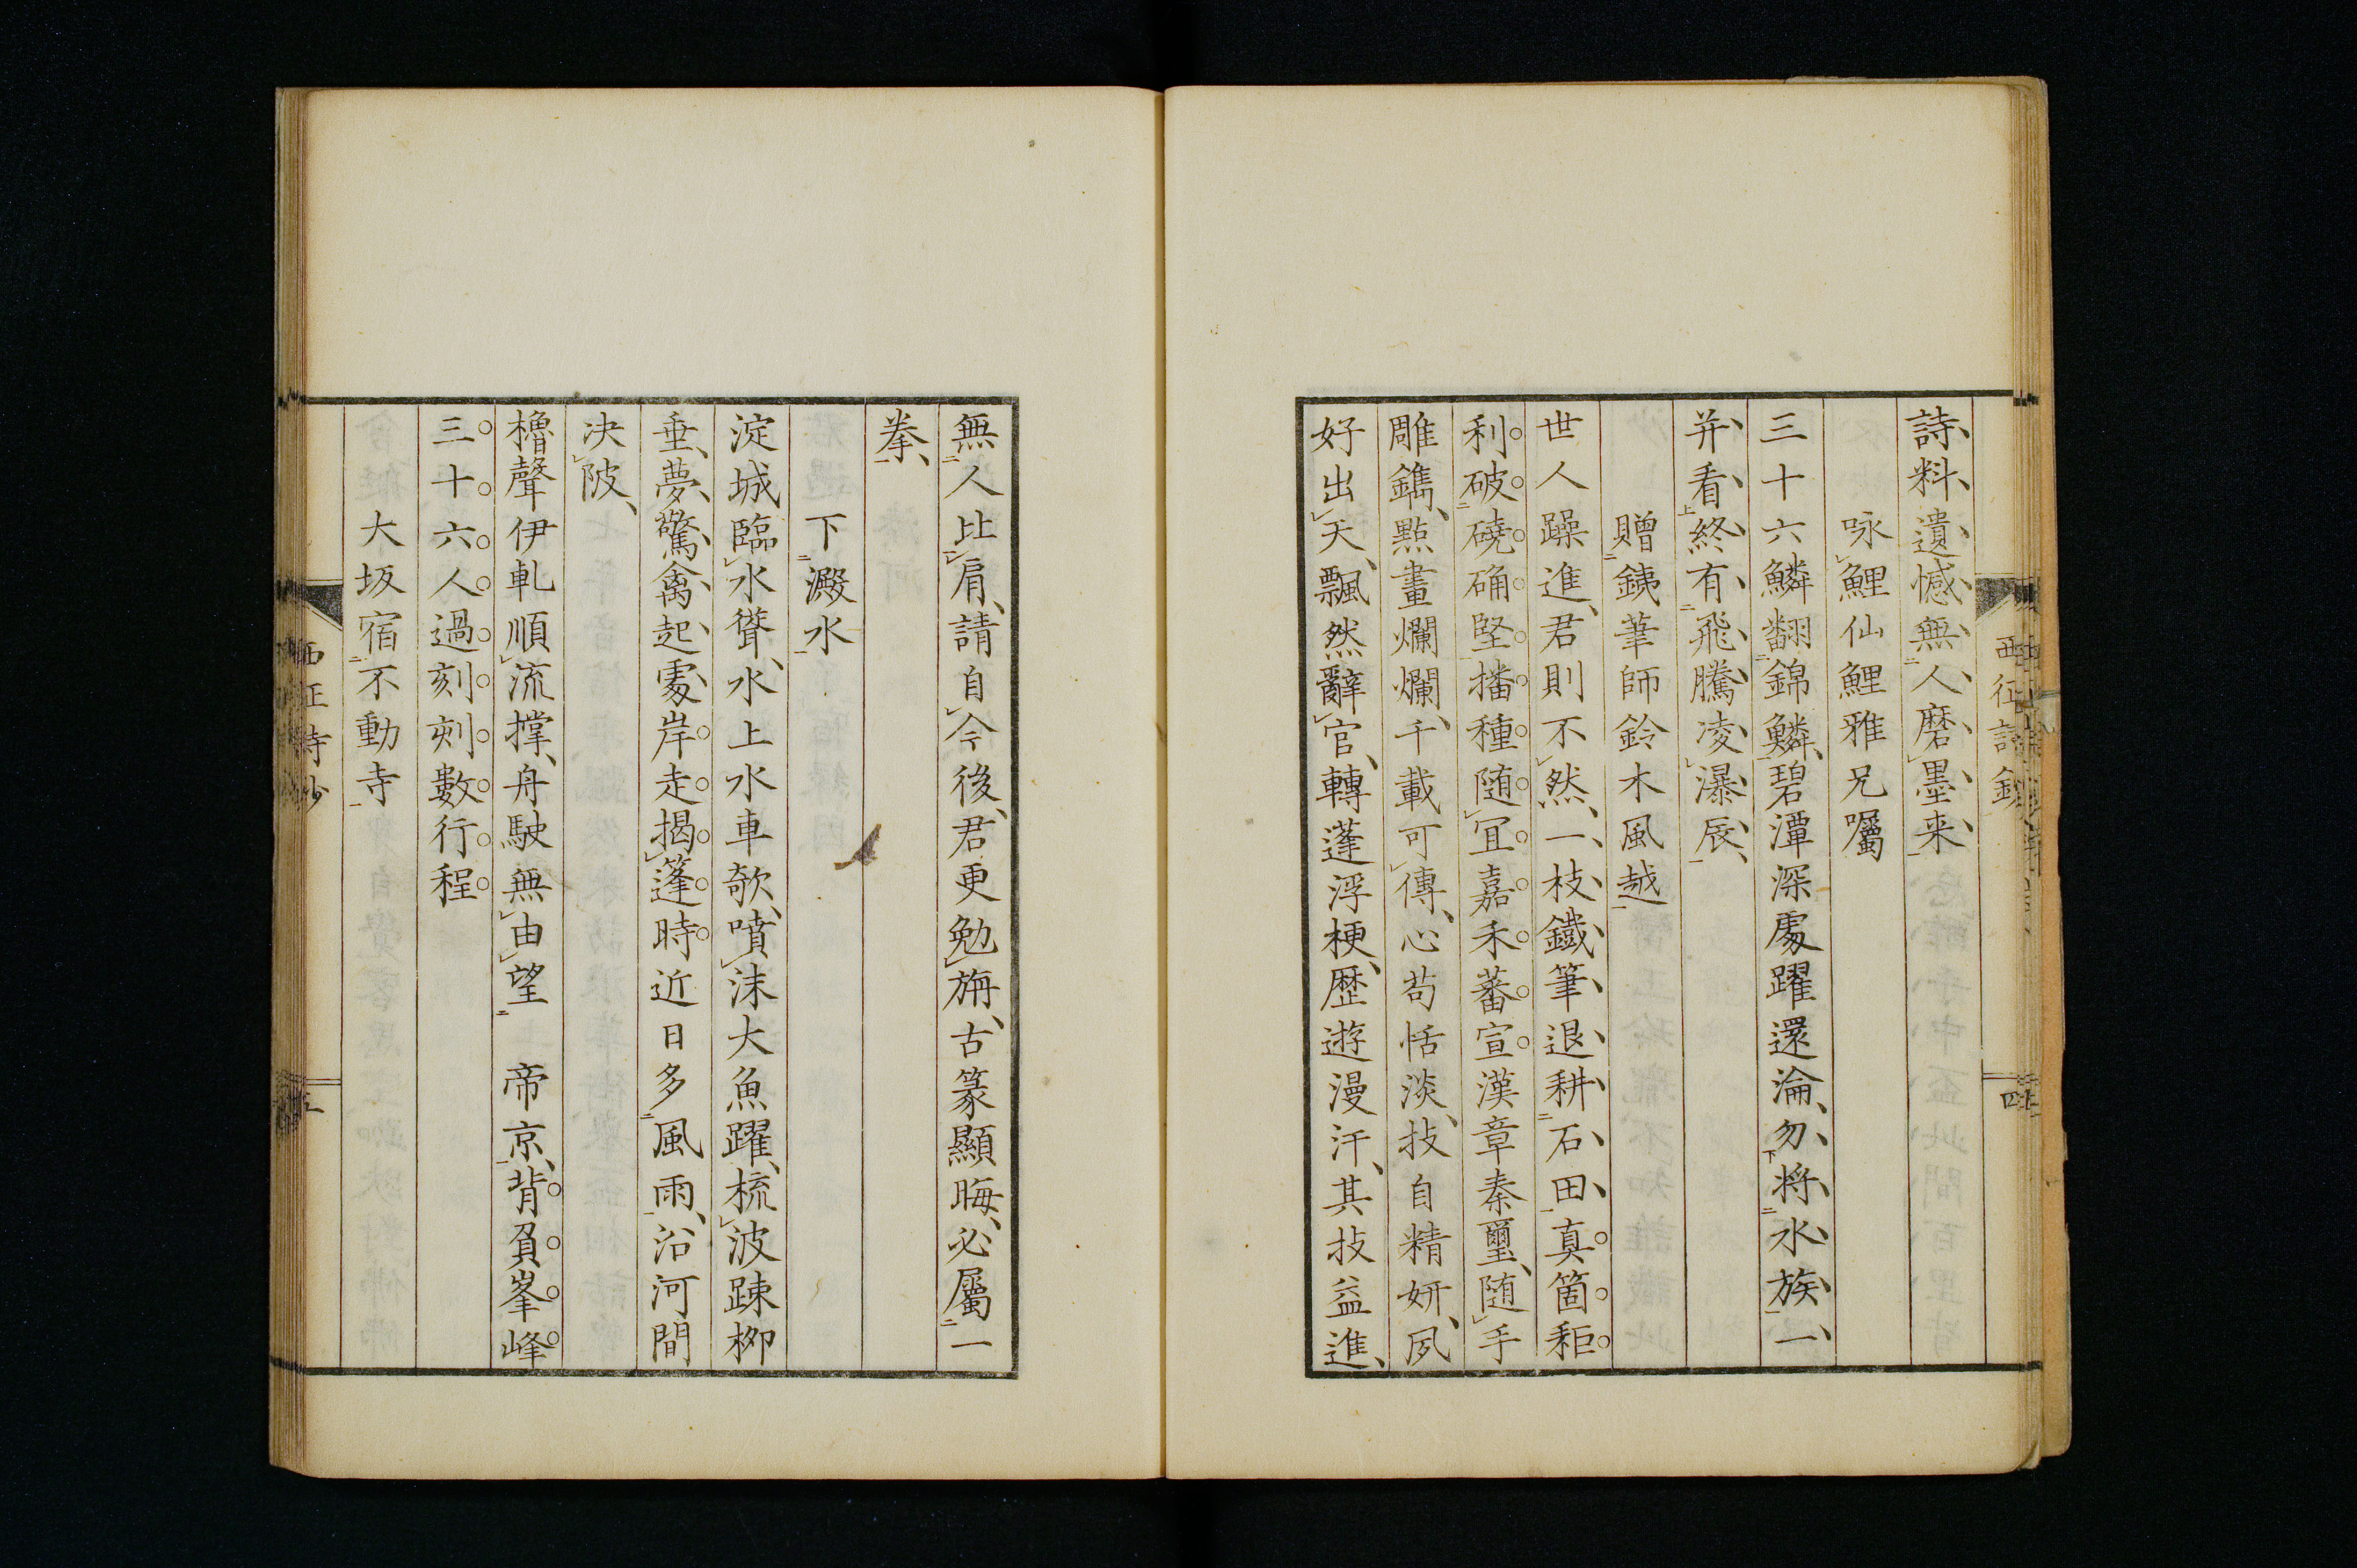 詩料遺憾無人磨墨来
咏鯉仙鯉雅兄囑
三十六鱗翻錦鱗碧潭深處躍還淪勿將水族一
并看終有飛騰凌瀑辰
贈銕筆師鈴木風越
世人躁進君則不然一枝鐵筆退耕石田真箇秬
利破磽确堅播種随宜嘉禾蕃宣漢章秦璽随手
雕鐫點畫爛爛千載可傳心苟恬淡技自精妍夙
好出天飄然辭官轉蓬浮梗歴遊漫汗其技益進
西征詩鈔
四
無人比肩請自今後君更勉旃古篆顯晦必屬一
拳
下澱水
淀城臨水聳水上水車欹噴沫大魚躍梳波踈柳
垂夢驚禽起處岸走揭篷時近日多風雨沿河間
决陂
櫓聲伊軋順流撑舟駛無由望 帝京背負峯峰
三十六人過刻刻數行程
大坂宿不動寺
西征詩鈔